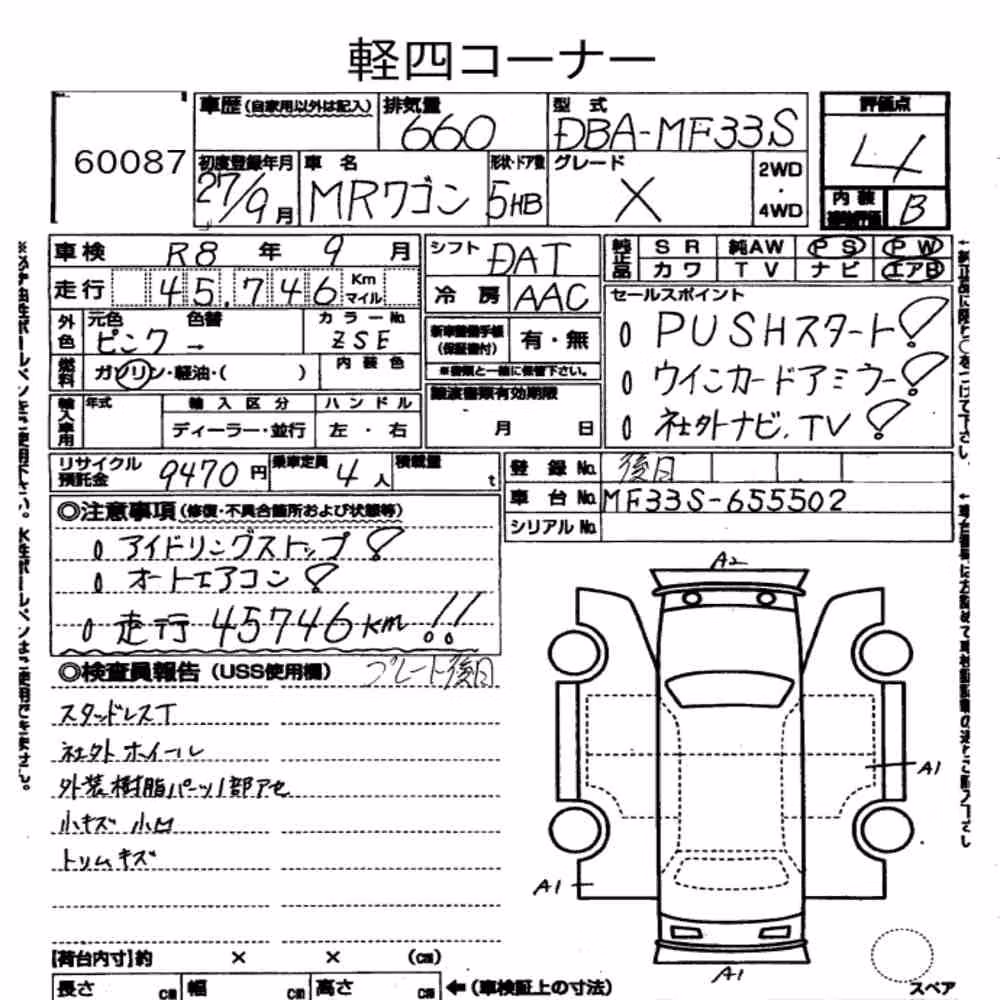 軽四コーナー
60087
車歴(自家用以外は記入)
排気量
660
型式
DBA-MF33S
評価点
4
初度登録年月
27/9月
車名
MRワゴン
形状・ドア数
5HB
グレード
X
2WD
・
4WD
内装
B
車検 R8年 9月
シフト DAT
純正品
SR 純AW PS PW
カワ TV ナビ エアB
走行 45,746 Km マイル
冷房 AAC
セールスポイント
外色
元色 色替
ピンク →
カラーNo.
ZSE
新車整備手帳
(保証書付)
有・無
※書類と一緒に保管下さい。
PUSHスタート!
燃料
ガソリン・軽油・( )
内装色
ウインカードアミラー!
輸入車用
年式
輸入区分
ハンドル
ディーラー・並行
左・右
譲渡書類有効期限
月 日
社外ナビ, TV!
リサイクル預託金 9470円
乗車定員 4人
積載量 t
登録No. 後日
車台No. MF33S-655502
シリアルNo.
◎注意事項(修復・不具合箇所および状態等)
アイドリングストップ!
オートエアコン!
走行 45746km!!
◎検査員報告(USS使用欄)
プレート後日
スタッドレスT
社外ホイール
外装樹脂パーツ1部アセ
小キズ 小凹
トリムキズ
A2
A1
A1
A1
【荷台内寸】約 × × (cm)
長さ cm 幅 cm 高さ cm ←(車検証上の寸法)
スペア